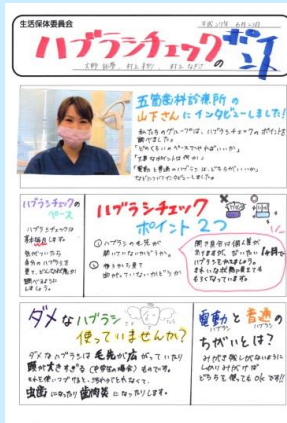 生活保体委員会
平成29年 6月23日
ハブラシチェックのポイント
五箇歯科診療所の
山下さんにインタビューしました!
私たちのグループは、ハブラシチェックのポイントを
調べました。
「どのくらいのペースでやればいいか」
「大事なポイントは何か」
「電動と普通のハブラシは、どちらがいいか」
などについてインタビューしました。
ハブラシチェックの
ペース
ハブラシチェックは
毎日します。
気がついたら
自分のハブラシを
見て、どんな状態か
調べるように
しましょう。
ハブラシチェック
ポイント2つ
① ハブラシの毛先が
開いていないかどうか
② 後ろから見て
曲がっていないかどうか
開き具合は個人差が
ありますが、だいたい1か月で
ハブラシをかえましょう。
ダメなハブラシ
使っていませんか?
ダメなハブラシは毛先が広がっていたり
頭が大きすぎる(中学生の場合)ものです。
虫歯になったり歯肉炎になったりします。
電動と普通の
ハブラシ ハブラシ
ちがいとは?
みがき残しがないように
しっかりみがけば
どちらを使ってもOKです!!